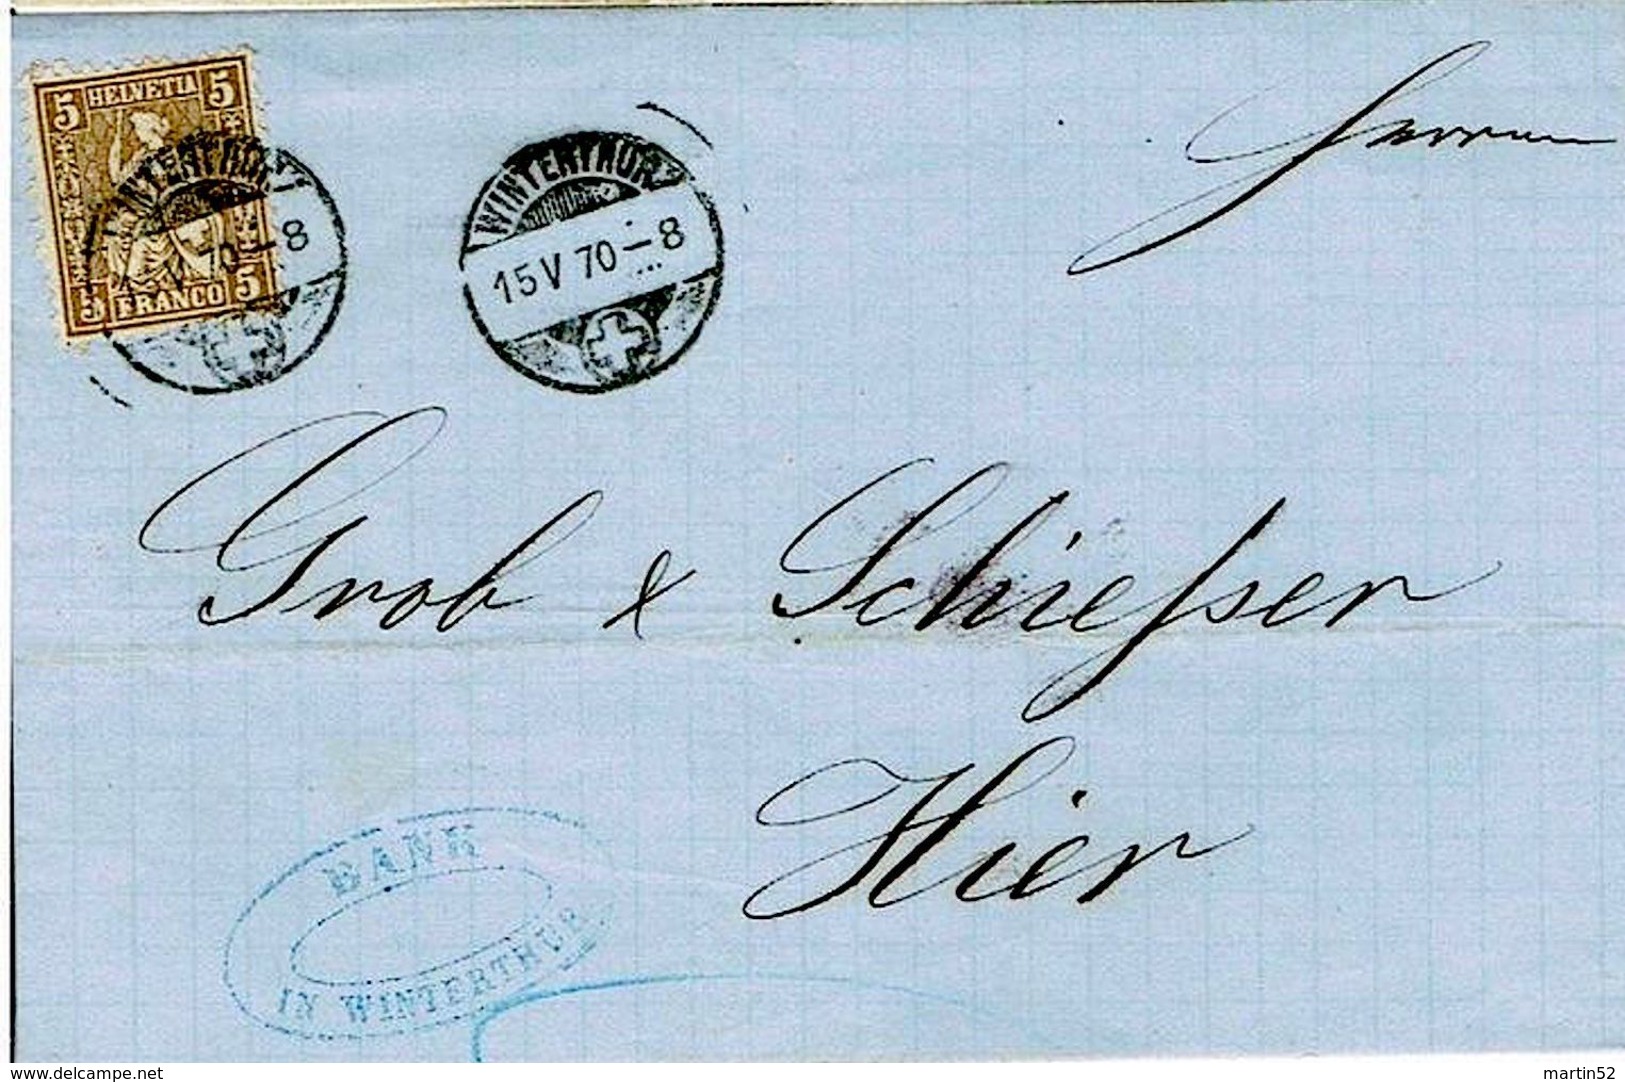 5 HELVETIA 5
5 FRANCO 5
WINTERTHUR
V 70-8
WINTERTHUR
15 V 70-8
Herren
Grob & Schießer
Hier
BANK
IN WINTERTHUR
delcampe.net
martin52